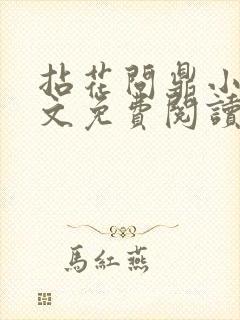 拈花問鼎小
文免費閱讀
馬紅燕